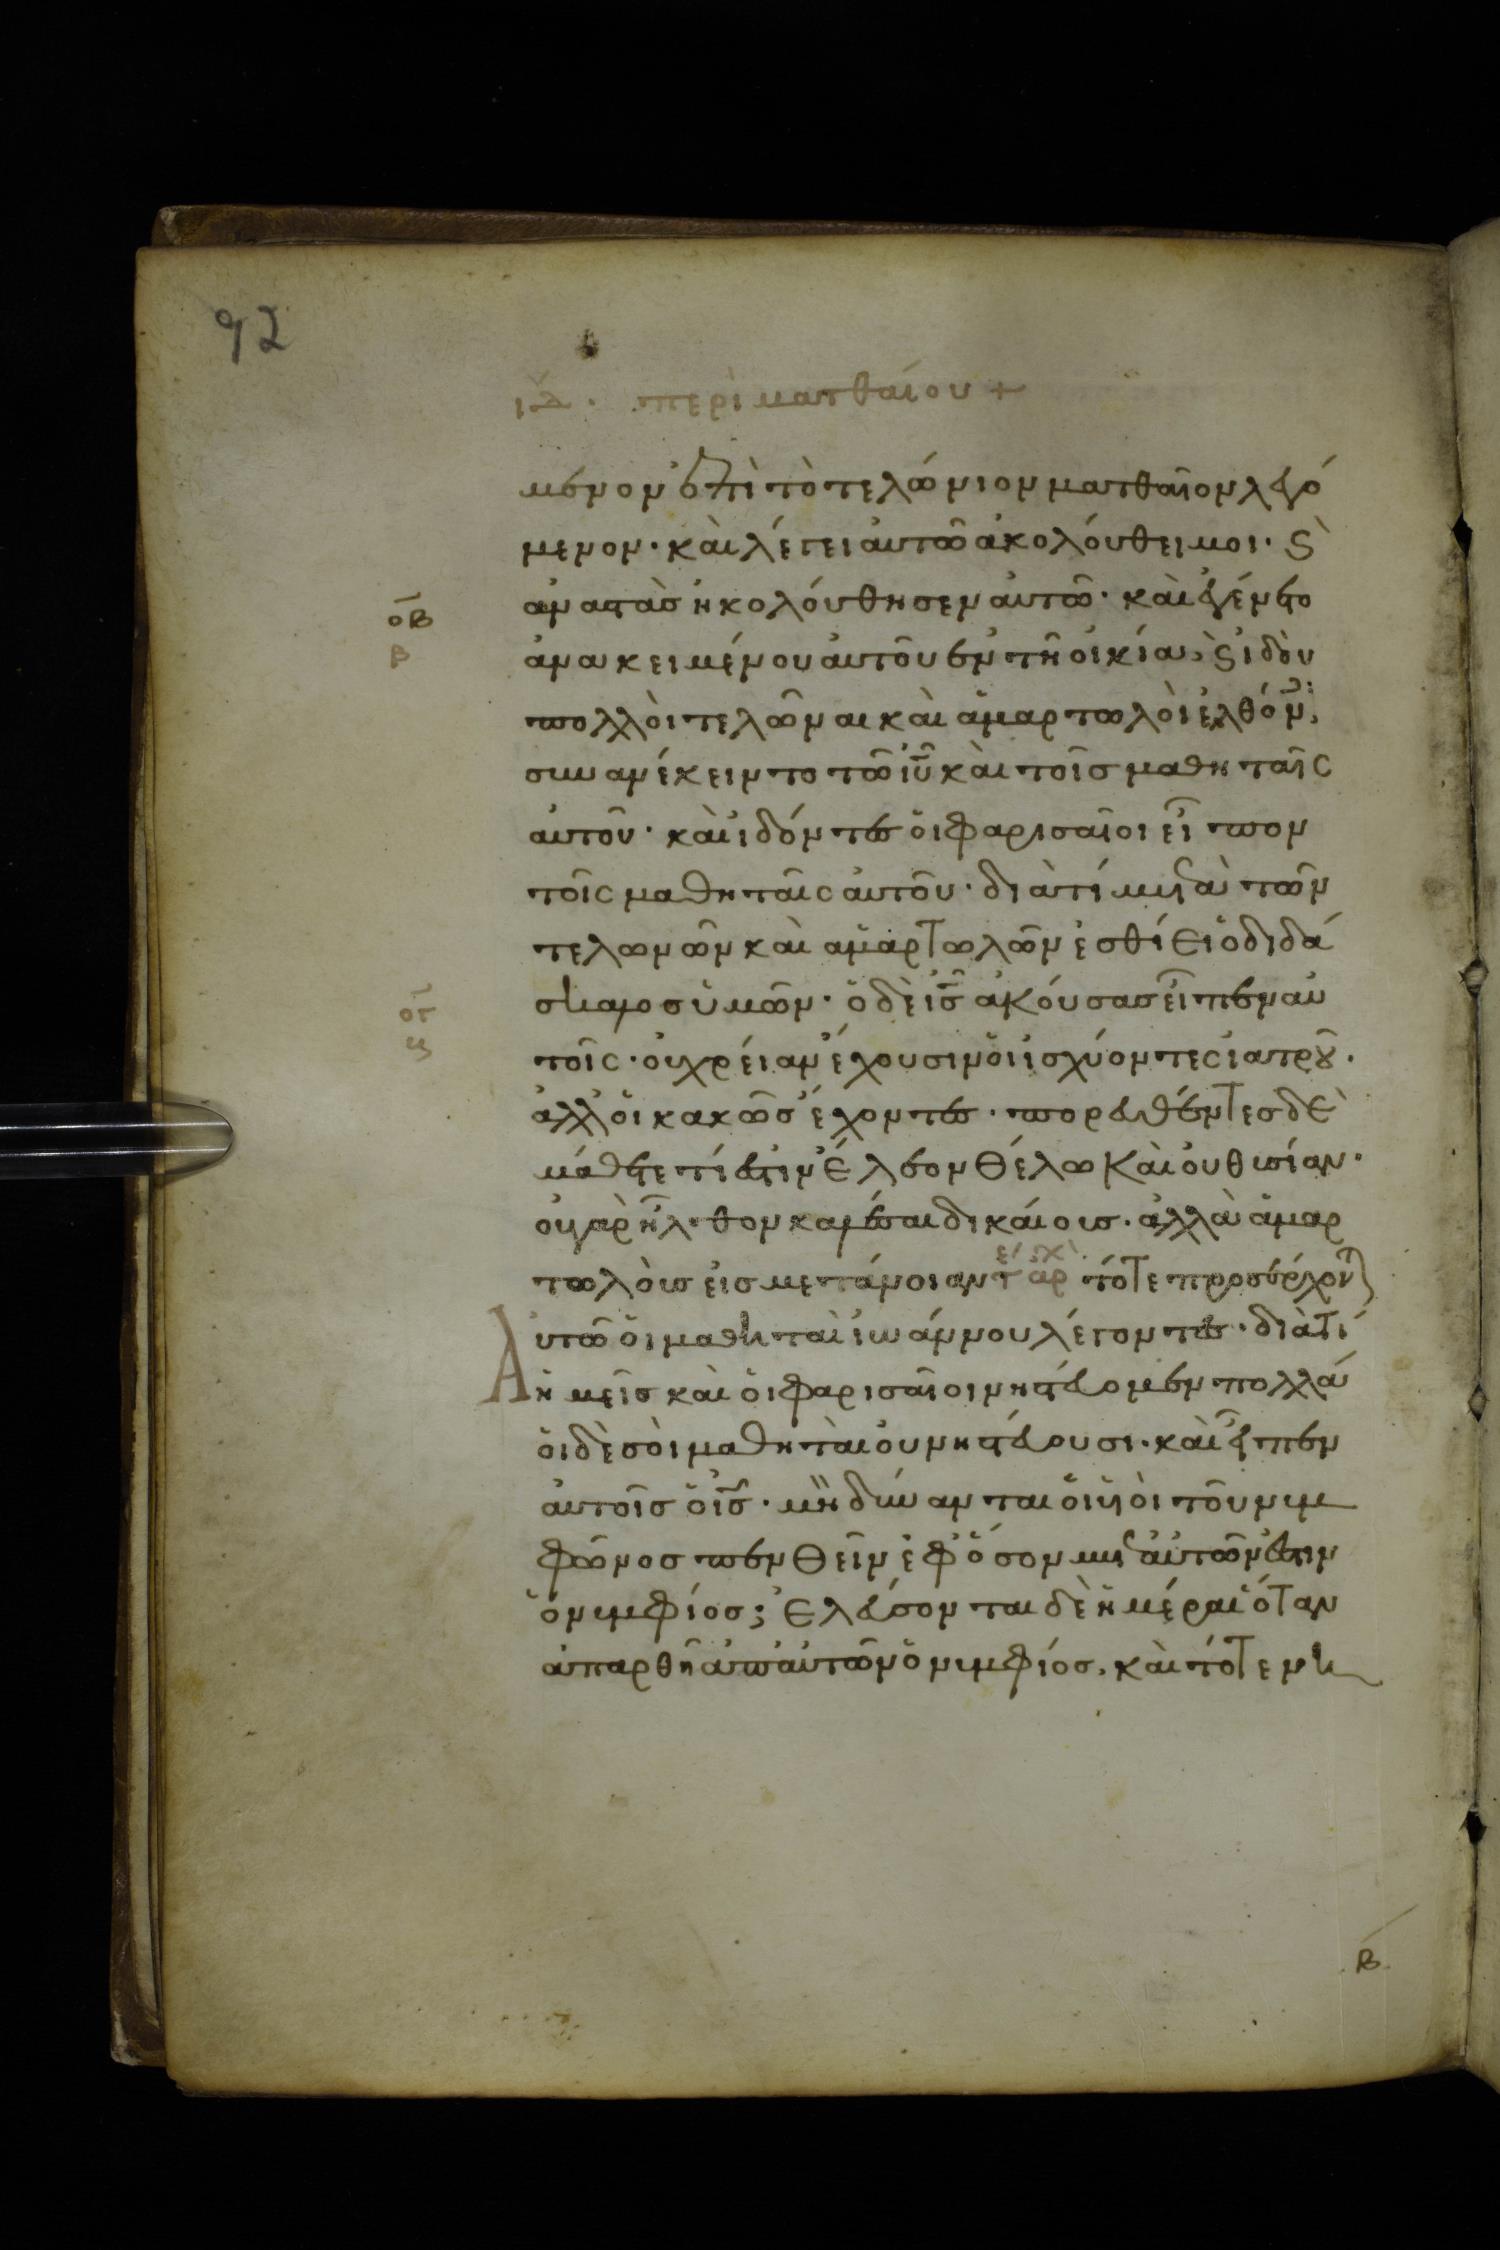 92
ιδ. περὶ ματθαίου +
μενον ἐπὶ τὸ τελώνιον ματθαῖον λεγό
μενον· καὶ λέγει αὐτῶ ἀκολούθει μοι· ϛ
ἀναστὰσ ἠκολούθησεν αὐτῶ· καὶ ἐγένετο
οβ
β
ἀνακειμένου αὐτοῦ ἐν τῆ οἰκία, ϛ ἰδοὺ
πολλοὶ τελῶναι καὶ ἁμαρτωλοὶ ἐλθόν
συνανέκειντο τῶ ιῦ καὶ τοῖσ μαθηταῖς
αὐτοῦ· καὶ ἰδόντεσ οἱ φαρισαῖοι εἶπον
τοῖς μαθηταῖς αὐτοῦ· διὰ τί μετὰ τῶν
τελωνῶν καὶ ἁμαρτωλῶν ἐσθίει ὁ διδά
σκαλοσ ὑμῶν· ὁ δὲ ισ ἀκούσασ εἶπεν αὐ
τοῖς· οὐ χρείαν ἔχουσιν οἱ ἰσχύοντες ἰατροῦ·
ἀλλ' οἱ κακῶσ ἔχοντεσ· πορευθέντεσ δὲ
μάθετε τί ἐστιν ἔλεον θέλω καὶ οὐ θυσίαν·
οὐ γὰρ ἦλθον καλέσαι δικαίουσ· ἀλλὰ ἁμαρ
τωλοὺσ εἰσ μετάνοιαν τότε προσέρχοντ
Αὐτῶ οἱ μαθηταὶ ἰωάννου λέγοντεσ· διὰ τί
ἡμεῖσ καὶ οἱ φαρισαῖοι νηστεύομεν πολλά
οἱ δὲ σοὶ μαθηταὶ οὐ νηστεύουσι· καὶ εἶπεν
αὐτοῖσ ὁ ισ· μὴ δύνανται οἱ υἱοὶ τοῦ νυμ
φῶνοσ πενθεῖν ἐφ' ὅσον μετ' αὐτῶν ἐστιν
ὁ νυμφίοσ; ἐλεύσονται δὲ ἡμέραι ὅταν
ἀπαρθῆ ἀπ' αὐτῶν ὁ νυμφίοσ, καὶ τότε νη
β